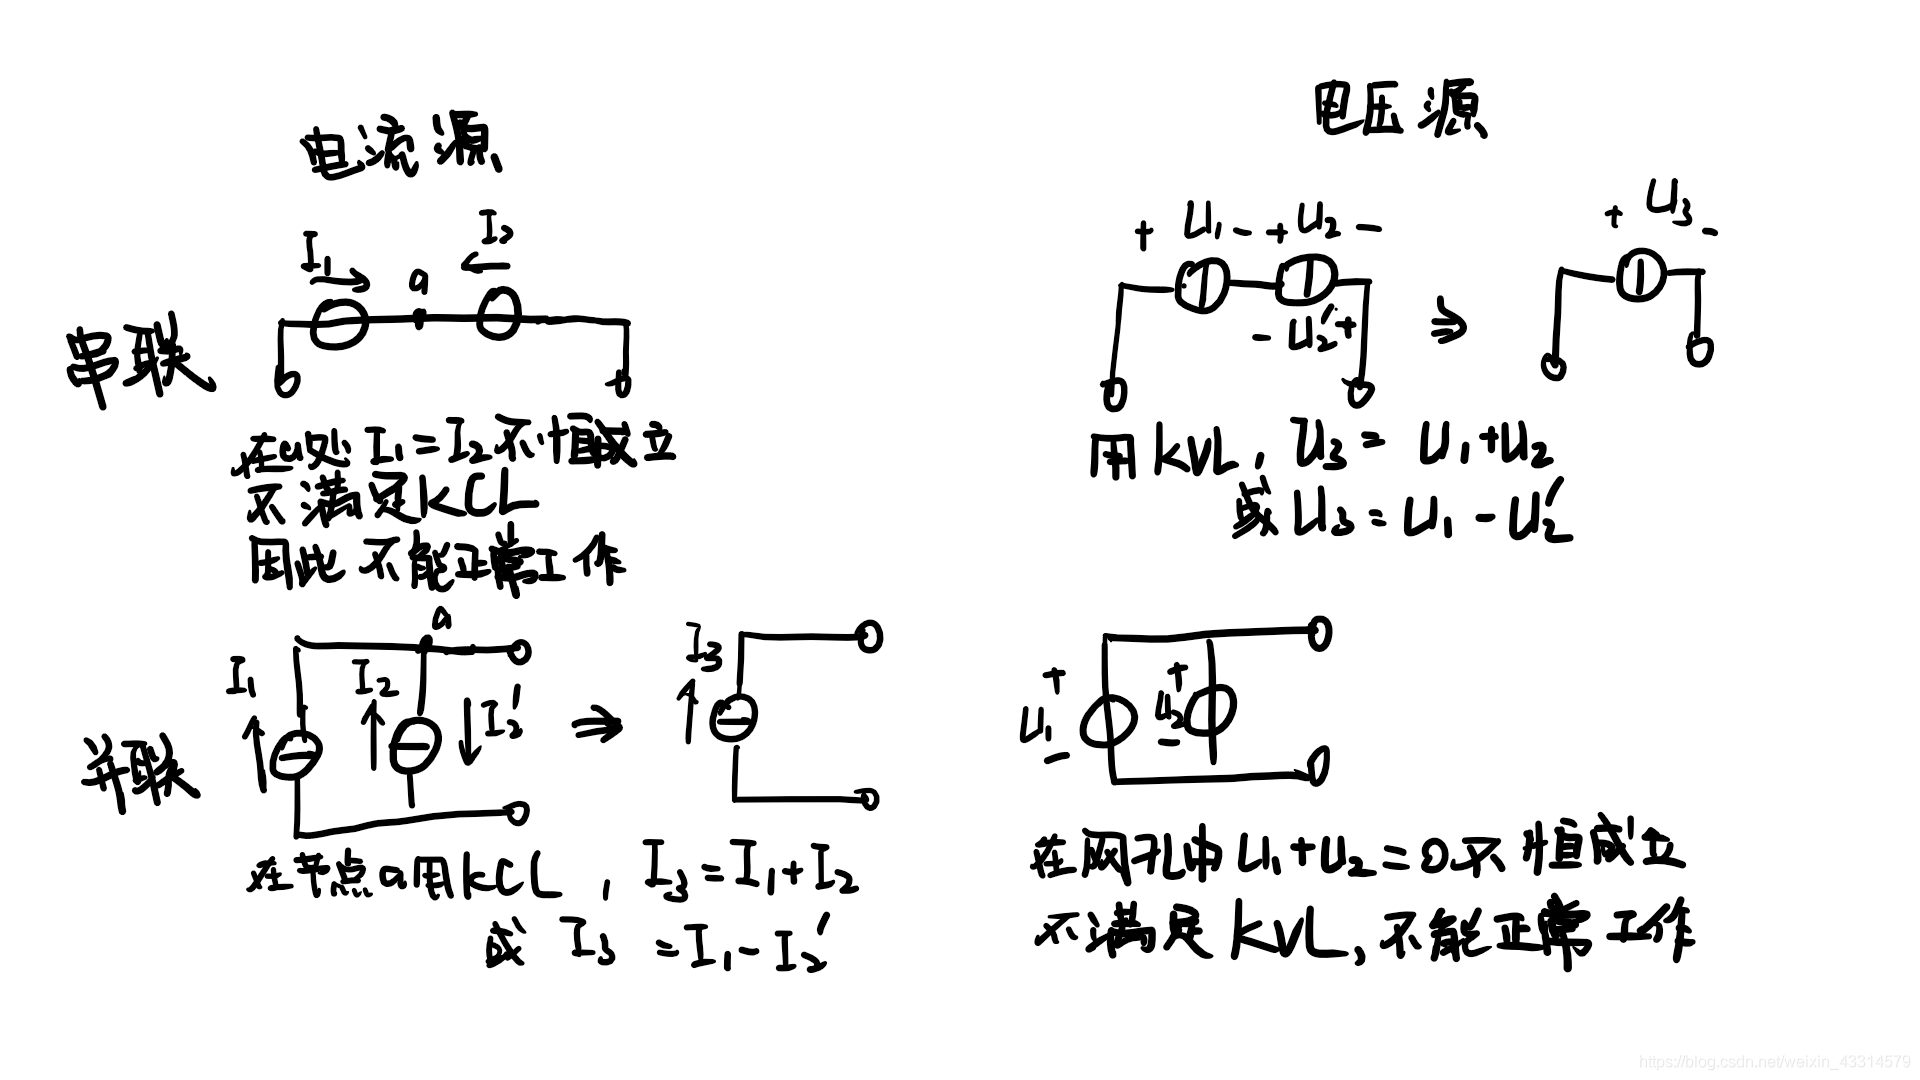 电流源
电压源
I₁
I₂
a
+ U₁ - + U₂ -
- U₂' +
+ U₃ -
串联
在a处 I₁=I₂不恒成立
不满足KCL
因此不能正常工作
用KVL, U₃= U₁+U₂
或U₃=U₁-U₂'
a
I₁
I₂
I₂'
I₃
+ U₁ -
+ U₂ -
并联
在节点a用KCL, I₃=I₁+I₂
或 I₃=I₁-I₂'
在网孔中U₁+U₂=0不恒成立
不满足KVL,不能正常工作
https://blog.csdn.net/weixin_43314579